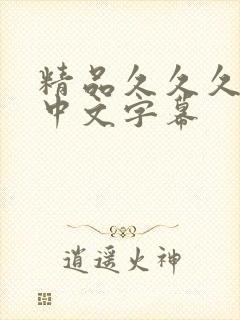 精品久久久
中文字幕
逍遥火神